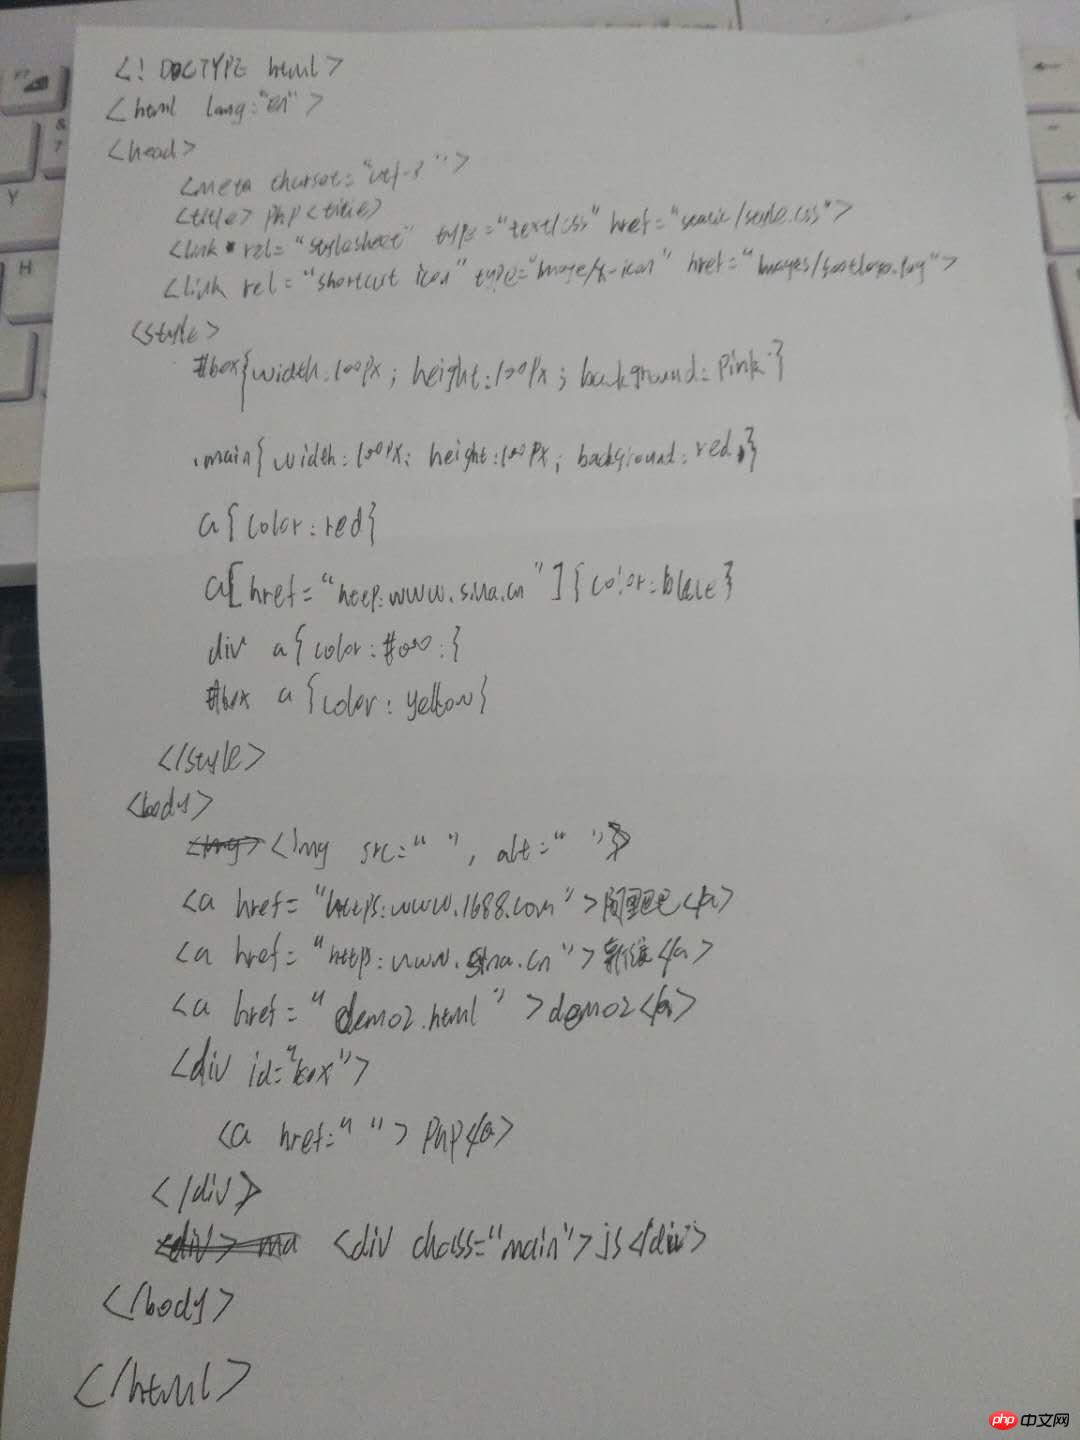 <! DOCTYPE html>
<html lang:"en">
<head>
<meta charset="utf-8">
<title> php <title>
<link rel="stylesheet" type="text/css" href="static/style.css">
<link rel="shortcut icon" type="image/x-icon" href="images/footlogo.png">
<style>
#box{width:100px; height:100px; background:pink}
.main{width:100px; height:100px; background:red;}
a{color:red}
a[href="http:www.sina.cn"]{color:blue}
div a{color:#000;}
#box a{color:yellow}
</style>
<body>
<img> <img src=" ", alt=" ">
<a href="https:www.1688.com">阿里巴巴</a>
<a href="https:www.sina.cn">新浪</a>
<a href="demo2.html">demo2</a>
<div id="box">
<a href=" ">php</a>
</div>
<div> ma <div class="main">js</div>
</body>
</html>
php 中文网